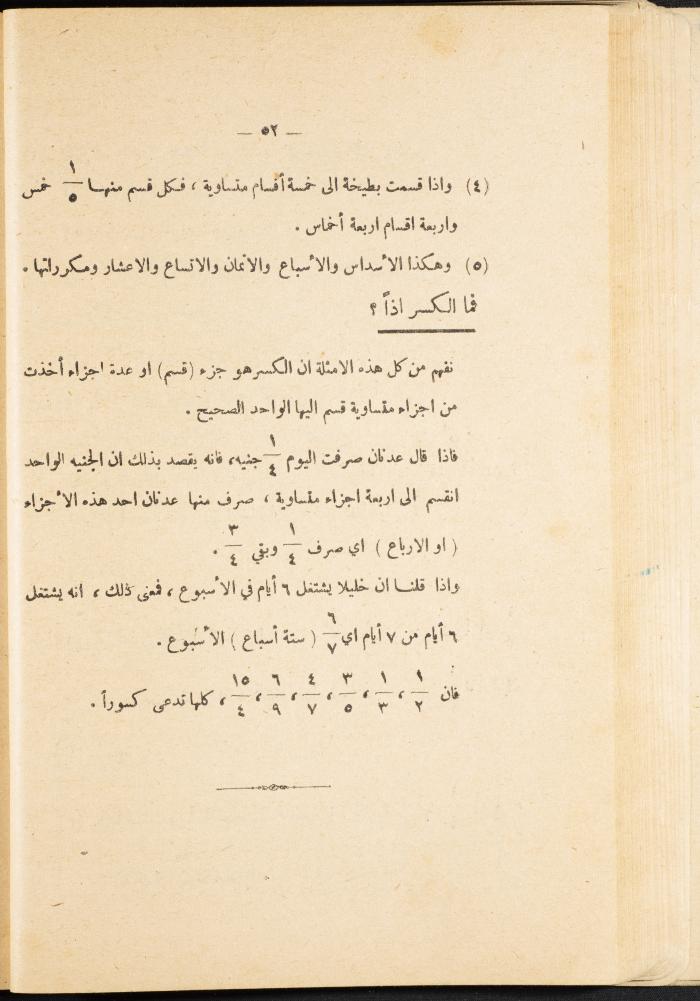 — ٥٢ —
(٤) واذا قسمت بطيخة الى خمسة أقسام متساوية ، فكل قسم منها ١/٥ خمس
واربعة اقسام اربعة أخماس .
(٥) وهكذا الأسداس والأسباع والأثمان والاتساع والاعشار ومكرراتها .
فما الكسر اذاً ؟
نفهم من كل هذه الامثلة ان الكسر هو جزء (قسم) او عدة اجزاء أخذت
من اجزاء متساوية قسم اليها الواحد الصحيح .
فاذا قال عدنان صرفت اليوم ١/٤ جنيه، فانه يقصد بذلك ان الجنيه الواحد
انقسم الى اربعة اجزاء متساوية ، صرف منها عدنان احد هذه الأجزاء
( او الارباع ) اي صرف ١/٤ وبقي ٣/٤ .
واذا قلنا ان خليلا يشتغل ٦ أيام في الأسبوع ، فمعنى ذلك ، انه يشتغل
٦ أيام من ٧ أيام اي ٦/٧ ( ستة أسباع ) الأسبوع .
فان ١/٢ ، ١/٣ ، ٣/٥ ، ٤/٧ ، ٦/٩ ، ١٥/٤ ، كلها تدعى كسوراً .